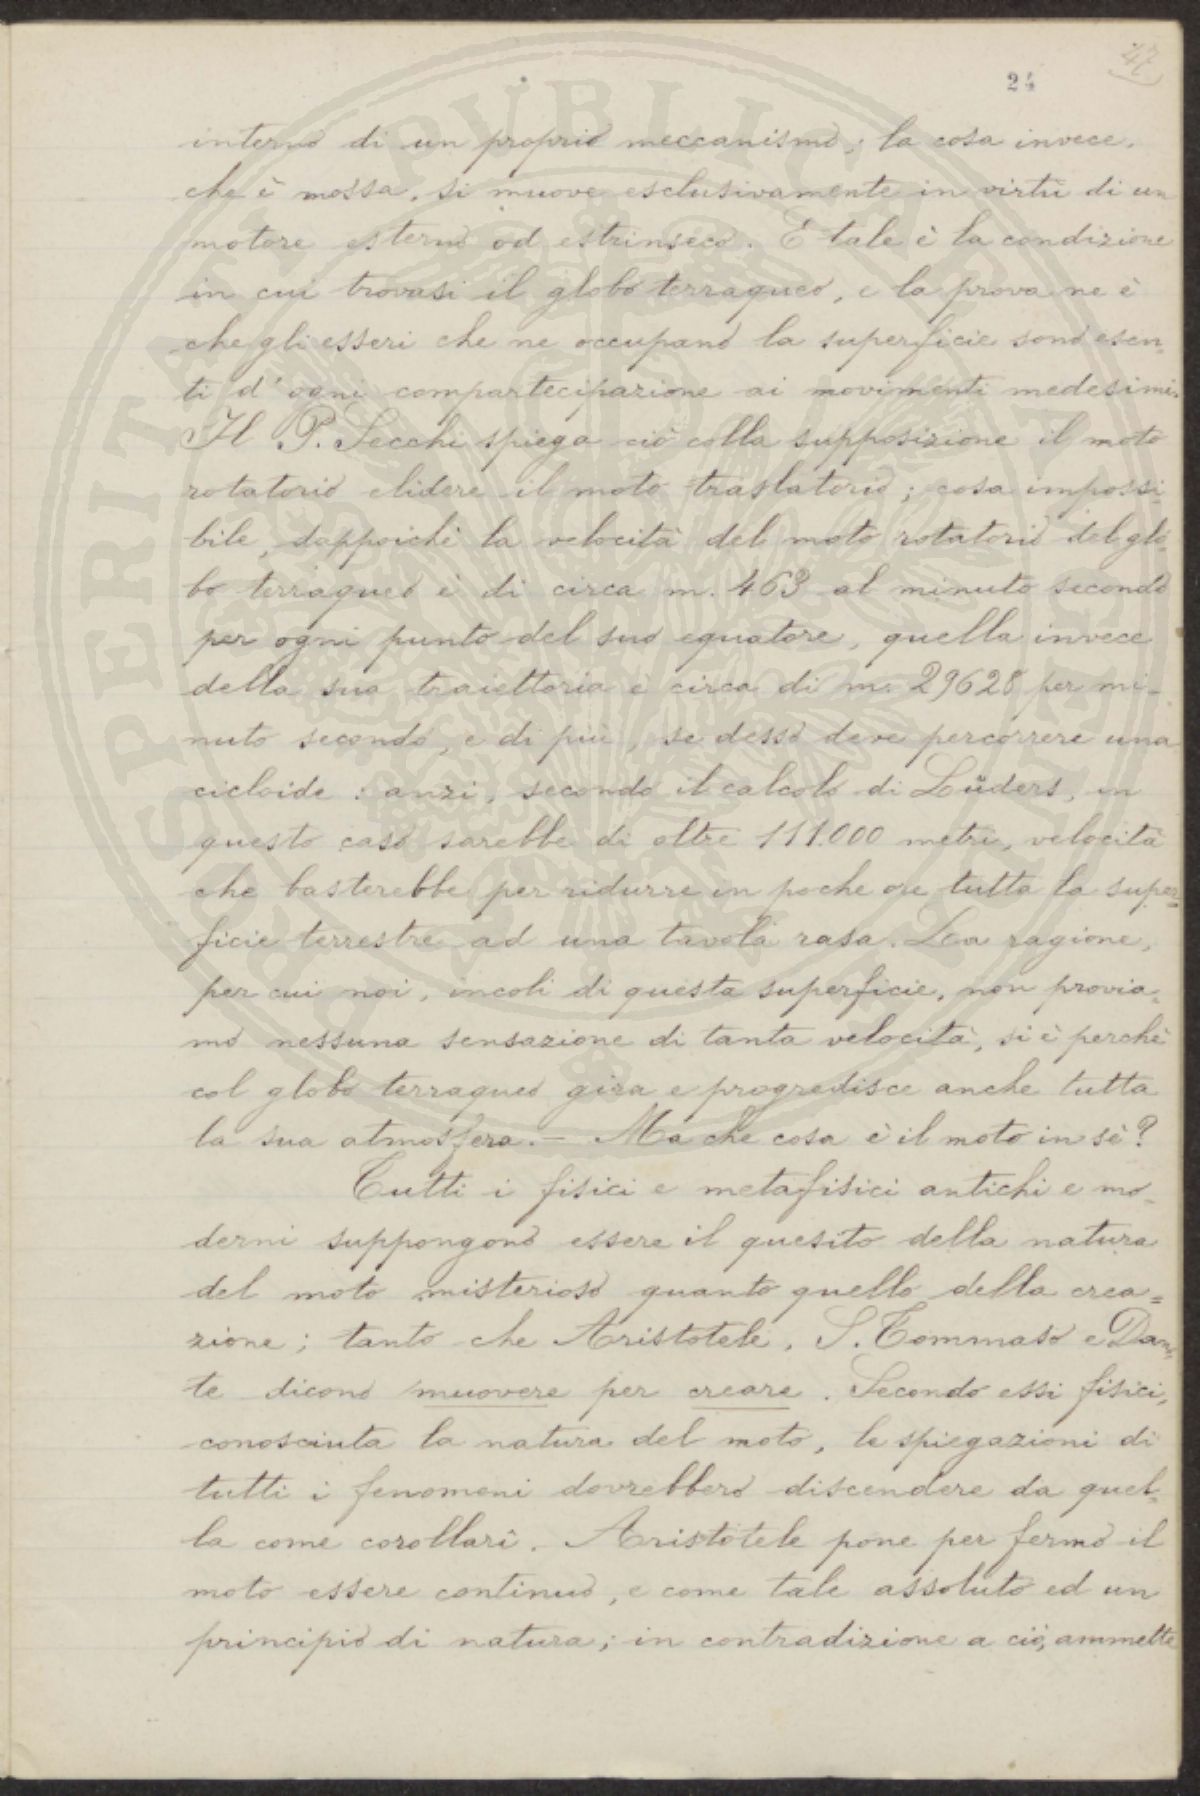 47
24
interno di un proprio meccanismo; la cosa invece,
che è mossa, si muove esclusivamente in virtù di un
motore esterno od estrinseco. E tale è la condizione
in cui trovasi il globo terraqueo, e la prova ne è
che gli esseri che ne occupano la superficie sono esen-
ti d'ogni compartecipazione ai movimenti medesimi.
Il P. Secchi spiega ciò colla supposizione il moto
rotatorio elidere il moto traslatorio; cosa impossi-
bile, dappoichè la velocità del moto rotatorio del glo-
bo terraqueo è di circa m. 463 al minuto secondo
per ogni punto del suo equatore, quella invece
della sua traiettoria è circa di m. 29628 per mi-
nuto secondo, e di più, se desso deve percorrere una
cicloide: anzi, secondo il calcolo di Lüders, in
questo caso sarebbe di oltre 111.000 metri, velocità
che basterebbe per ridurre in poche ore tutta la super-
ficie terrestre ad una tavola rasa. La ragione,
per cui noi, incoli di questa superficie, non provia-
mo nessuna sensazione di tanta velocità, si è perchè
col globo terraqueo gira e progredisce anche tutta
la sua atmosfera. — Ma che cosa è il moto in sè?
Tutti i fisici e metafisici antichi e mo-
derni suppongono essere il quesito della natura
del moto misterioso quanto quello della crea=
zione; tanto che Aristotele, S. Tommaso e Dan-
te dicono muovere per creare. Secondo essi fisici,
conosciuta la natura del moto, le spiegazioni di
tutti i fenomeni dovrebbero discendere da quel-
la come corollarî. Aristotele pone per fermo il
moto essere continuo, e come tale assoluto ed un
principio di natura; in contradizione a ciò, ammette
PROSPERITATI PUBLICAE